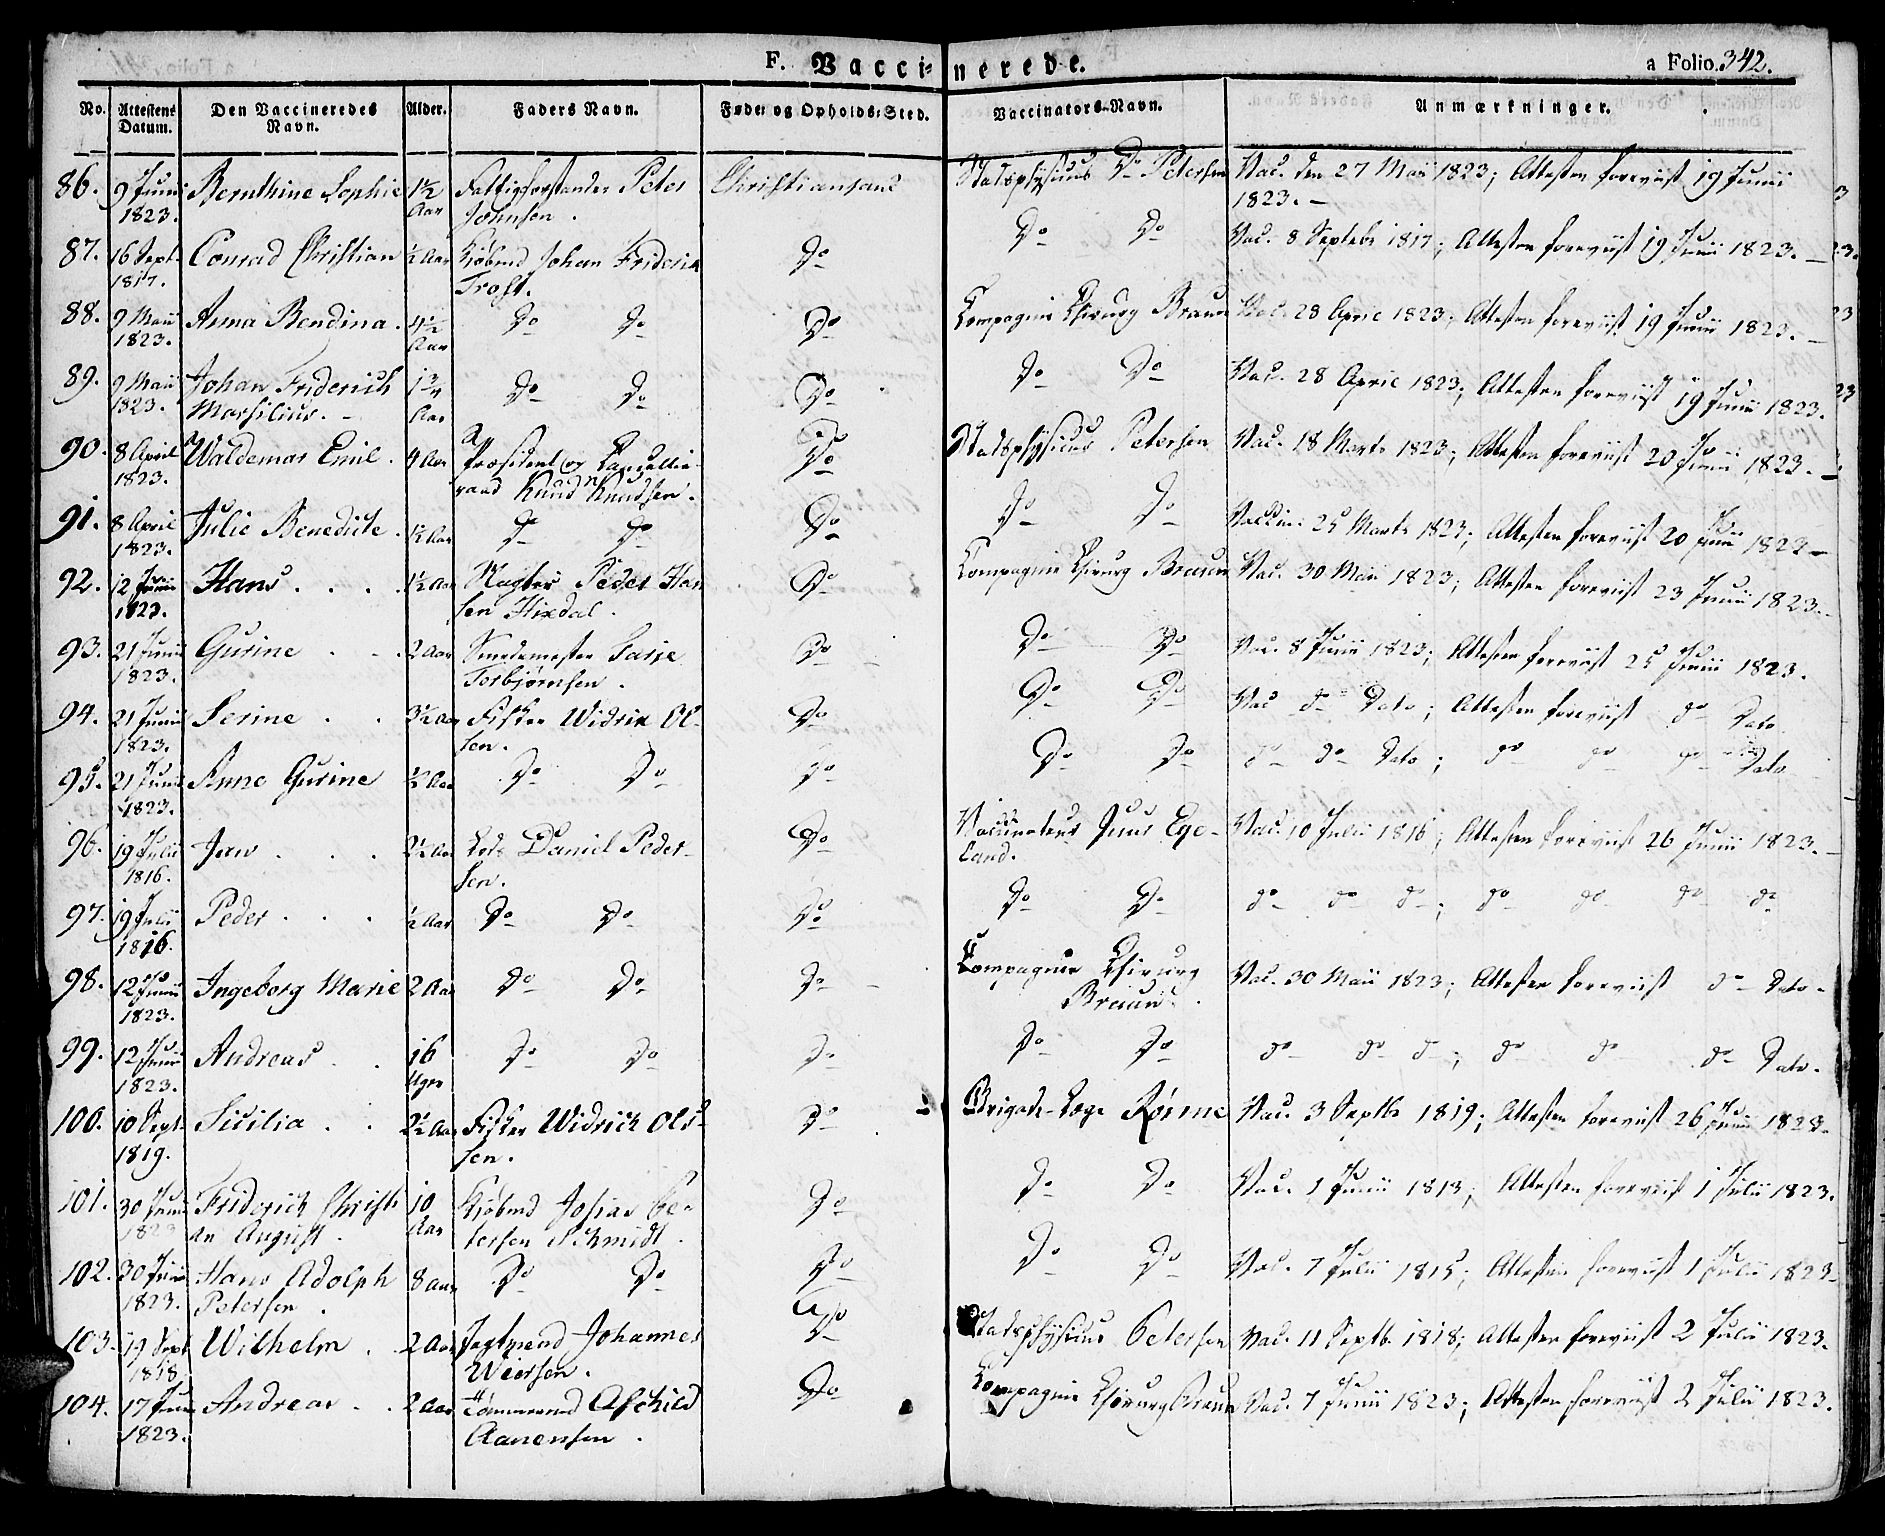 F. Vaccinerede. a Folio 342.
No. Attestens Datum. Den Vaccineredes Navn. Alder. Faders Navn. Føde- og Opholds-Sted. Vaccinators-Navn. Anmærkninger.
86. 9 Junii 1823. Bernthine Sophie 1½ Aar Fattigforstander Peter Johnsen. Christiansand Stadsphysicus Dr Petersen Vac. den 27 Maii 1823; Attesten foreviist 19 Junii 1823. –
87. 16 Sept. 1817. Conrad Christian ½ Aar Kiøbmd Johan Friderich Trost. Do Do Do Vac. 8 Septebr 1817; Attesten foreviist 19 Junii 1823. –
88. 9 Maii 1823. Anna Bendina. 4½ Aar Do Do Do Compagnie Chirurg Braun Vac. 28 April 1823; Attesten foreviist 19 Junii 1823. –
89. 9 Maii 1823. Johan Friderich Marsilius. – 1¾ Aar Do Do Do Do Do Vac. 28 April 1823; Attesten foreviist 19 Junii 1823.
90. 8 April 1823. Waldemar Emil. 4 Aar Præsident og Cancellieraad Knud Knudsen. Do Stadsphysicus Petersen Vac. 18 Marts 1823; Attesten foreviist 20 Junii 1823. –
91. 8 April 1823. Julie Benedicte. ½ Aar Do Do Do Do Do Vaccin. 25 Marts 1823; Attesten foreviist 20 Junii 1823 –
92. 12 Junii 1823. Hans . . . 1½ Aar Vægter Peder Hansen Hixdal. Do Compagnie Chirurg Braun Vac. 30 Maii 1823; Attesten foreviist 23 Junii 1823.
93. 21 Junii 1823. Gurine . . 2 Aar Smedemester Tarje Torbjørnsen. Do Do Do Vac. 8 Junii 1823; Attesten foreviist 25 Junii 1823.
94. 21 Junii 1823. Serine . . 3½ Aar Fisker Widrik Olsen. Do Do Do Vac do Dato; Attesten foreviist do Dato
95. 21 Junii 1823. Anne Gurine ½ Aar Do Do Do Do Do do do Dato; do do do Dato
96. 19 Julii 1816. Jan . . . 2½ Aar Lods Daniel Pedersen. Do Vaccinateur Juul Egeland. Vac. 10 Julii 1816; Attesten foreviist 26 Junii 1823. –
97. 19 Julii 1816. Peder . . . ½ Aar Do Do Do Do Do do do do; do do do do
98. 12 Junii 1823. Ingeborg Marie 2 Aar Do Do Do Compagnie Chirurg Braun. Vac. 30 Maii 1823; Attesten foreviist do Dato.
99. 12 Junii 1823. Andreas . . 16 Uger Do Do Do Do Do do do do; do do do Dato.
100. 10 Sept. 1819. Sicilia . . 2½ Aar Fisker Widrich Olssen. Do Brigade-Læge Rømme Vac. 3 Septbr 1819; Attesten foreviist 26 Junii 1823.
101. 30 Junii 1823 Friderich Christian August. 10 Aar Kiøbmd Josias Petersen Schmidt. Do Do Do Vac. 1 Junii 1813; Attesten foreviist 1 Julii 1823.
102. 30 Junii 1823. Hans Adolph Petersen. 8 Aar Do Do Do Do Do Vac. 7 Julii 1815; Attesten foreviist 1 Julii 1823
103. 19 Sept 1818 Wilhelm . . 2 Aar Johannes Weiersen. Do Stadsphysicus Petersen Vac. 11 Septb. 1818; Attesten foreviist 2 Julii 1823.
104. 17 Junii 1823. Andreas . . 2 Aar Tømmermd Aschild Aanensen. Do Compagnie Chirurg Braun Vac. 7 Junii 1823; Attesten foreviist 2 Julii 1823.